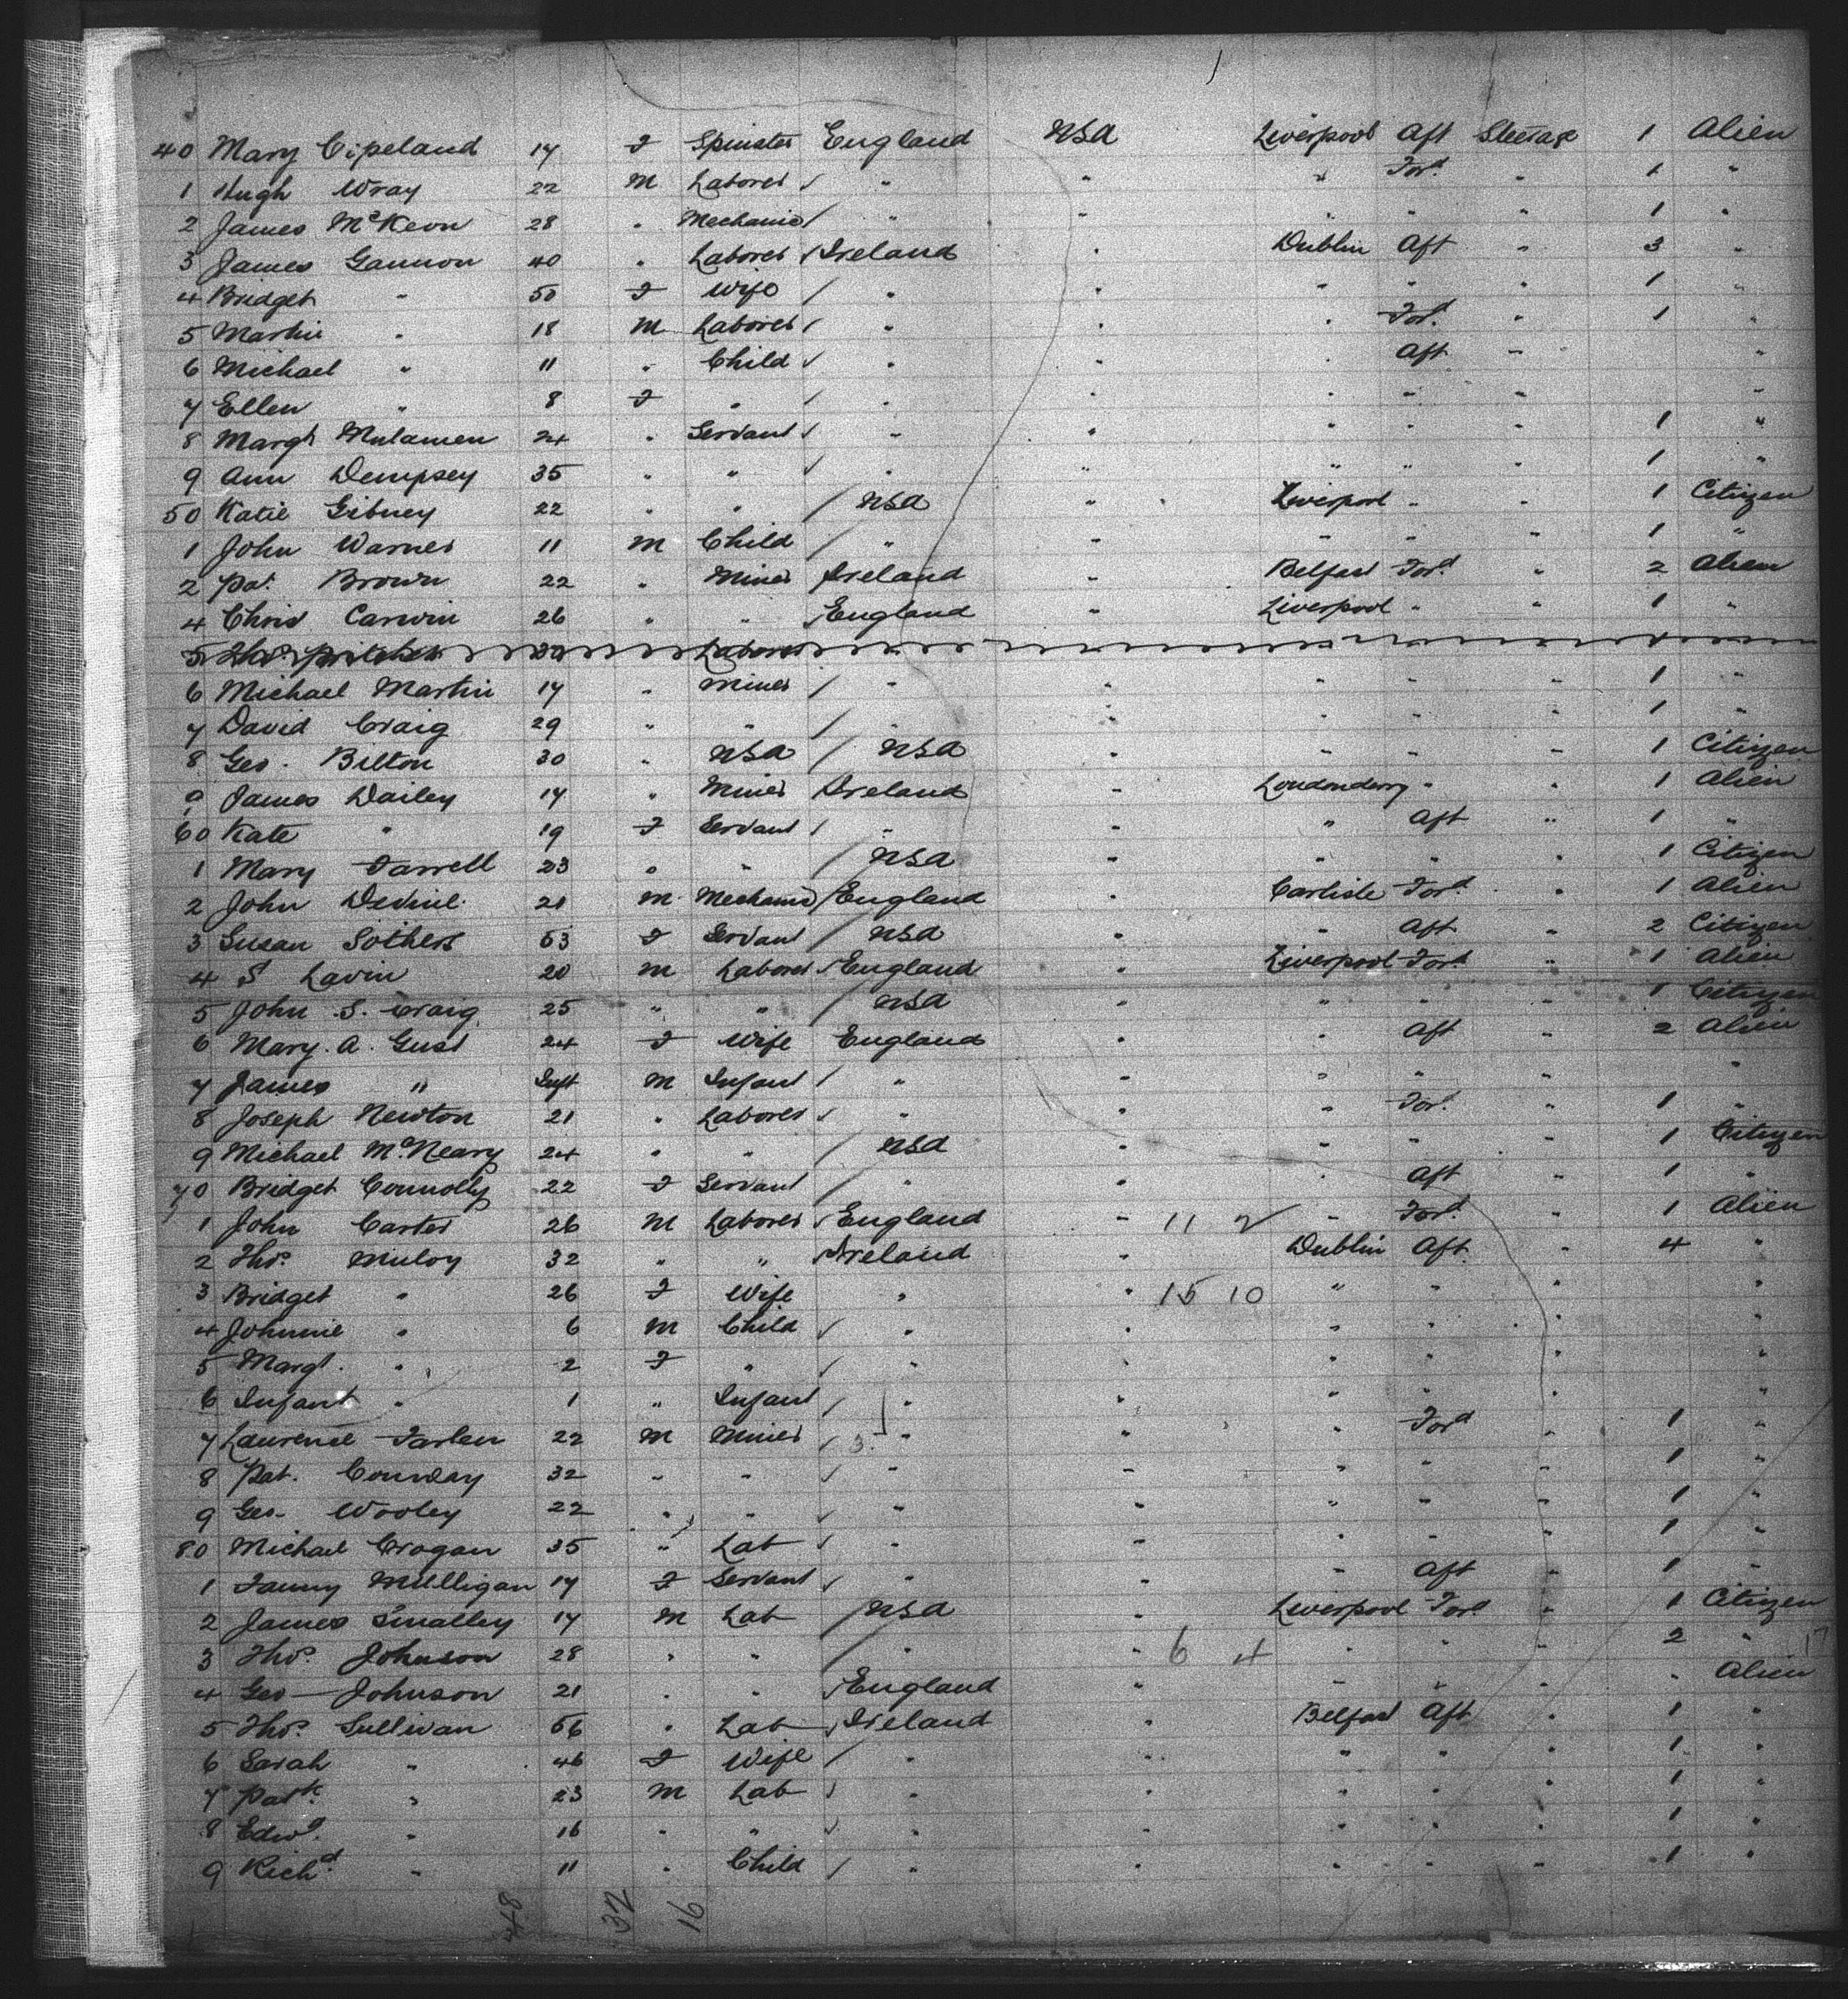 40 Mary Copeland 17 F Spinster England USA Liverpool Aft Steerage 1 Alien
1 Hugh Wray 22 M Laborer " " " Ford " 1 "
2 James McKeon 28 " Mechanic " " " " " 1 "
3 James Gannon 40 " Laborer Ireland " Dublin Aft " 3 "
4 Bridget " 50 F Wife " " " " " 1 "
5 Martin " 18 M Laborer " " " Ford " 1 "
6 Michael " 11 " Child " " " Aft " "
7 Ellen " 8 F " " " " " " "
8 Margt 24 " Servant " " " " " 1 "
9 Ann Dempsey 35 " " " " " " " 1 "
50 Katie Gibney 22 " " USA " Liverpool " " 1 Citizen
1 John Warner 11 M Child " " " " " 1 "
2 Pat. Brown 22 " Miner Ireland " Belfast Ford " 2 Alien
4 Chris Carwin 26 " " England " Liverpool " " 1 "
5 Laborer
6 Michael Martin 17 " Miner " " " " " 1 "
7 David Craig 29 " " " " " " " 1 "
8 Geo. Bilton 30 " USA USA " " " " 1 Citizen
9 James Dailey 17 " Miner Ireland " Londonderry " " 1 Alien
60 Kate " 19 F Servant " " " Aft " 1 "
1 Mary Farrell 23 " " USA " " " " 1 Citizen
2 John Devine 21 M Mechanic England " Carlisle Ford " 1 Alien
3 Susan Sothers 53 F Servant USA " " Aft " 2 Citizen
4 S Lavin 20 M Laborer England " Liverpool Ford " 1 Alien
5 John S. Craig 25 " " USA " " " " 1 Citizen
6 Mary. A. Gust 24 F Wife England " " Aft " 2 Alien
7 James " Inft M Infant " " " " " "
8 Joseph Newton 21 " Laborer " " " Ford " 1 "
9 Michael McNeary 24 " " USA " " " " 1 Citizen
70 Bridget Connolly 22 F Servant " " " Aft " 1 "
1 John Carter 26 M Laborer England " 11 2 " Ford " 1 Alien
2 Thos. Muloy 32 " " Ireland " Dublin Aft " 4 "
3 Bridget " 26 F Wife " " 15 10 " " " "
4 Johnnie " 6 M Child " " " " " "
5 Margt. " 2 F " " " " " " "
6 Infant " 1 " Infant " " " " " "
7 Laurence Farlen 22 M Miner 3 " " " Ford " 1 "
8 Pat. Conway 32 " " " " " " " 1 "
9 Geo. Wooley 22 " " " " " " " 1 "
80 Michael Crogan 35 " Lab " " " " " 1 "
1 Fanny Mulligan 17 F Servant " " " Aft " 1 "
2 James Smalley 17 M Lab USA " Liverpool Ford " 1 Citizen
3 Thos. Johnson 28 " " " " 6 4 " " " 2 " 17
4 Geo Johnson 21 " " England " " " " " Alien
5 Thos. Sullivan 56 " Lab Ireland " Belfast Aft " 1 "
6 Sarah " 46 F Wife " " " " " 1 "
7 Patk. " 23 M Lab " " " " " 1 "
8 Edwd. " 16 " " " " " " " 1 "
9 Richd. " 11 " Child " " " " " 1 "
48 32 16